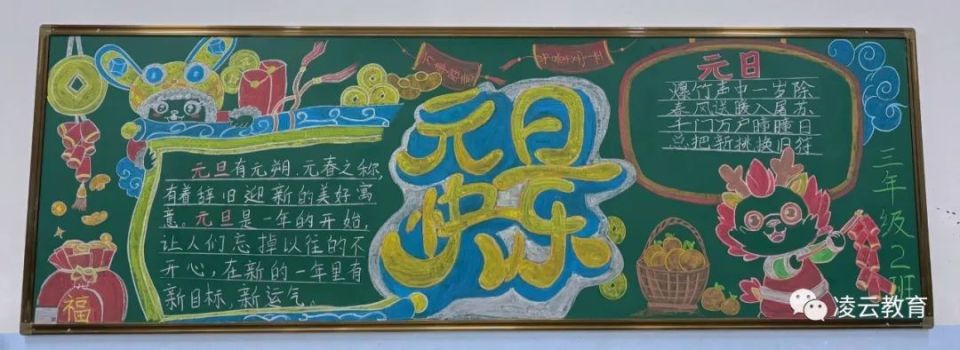 福
元旦有元朔、元春之称
有着辞旧迎新的美好寓
意。元旦是一年的开始,
让人们忘掉以往的不
开心,在新的一年里有
新目标、新运气。
元旦
快乐
元日
爆竹声中一岁除
春风送暖入屠苏
千门万户瞳瞳日
总把新桃换旧符
三年级2班
凌云教育